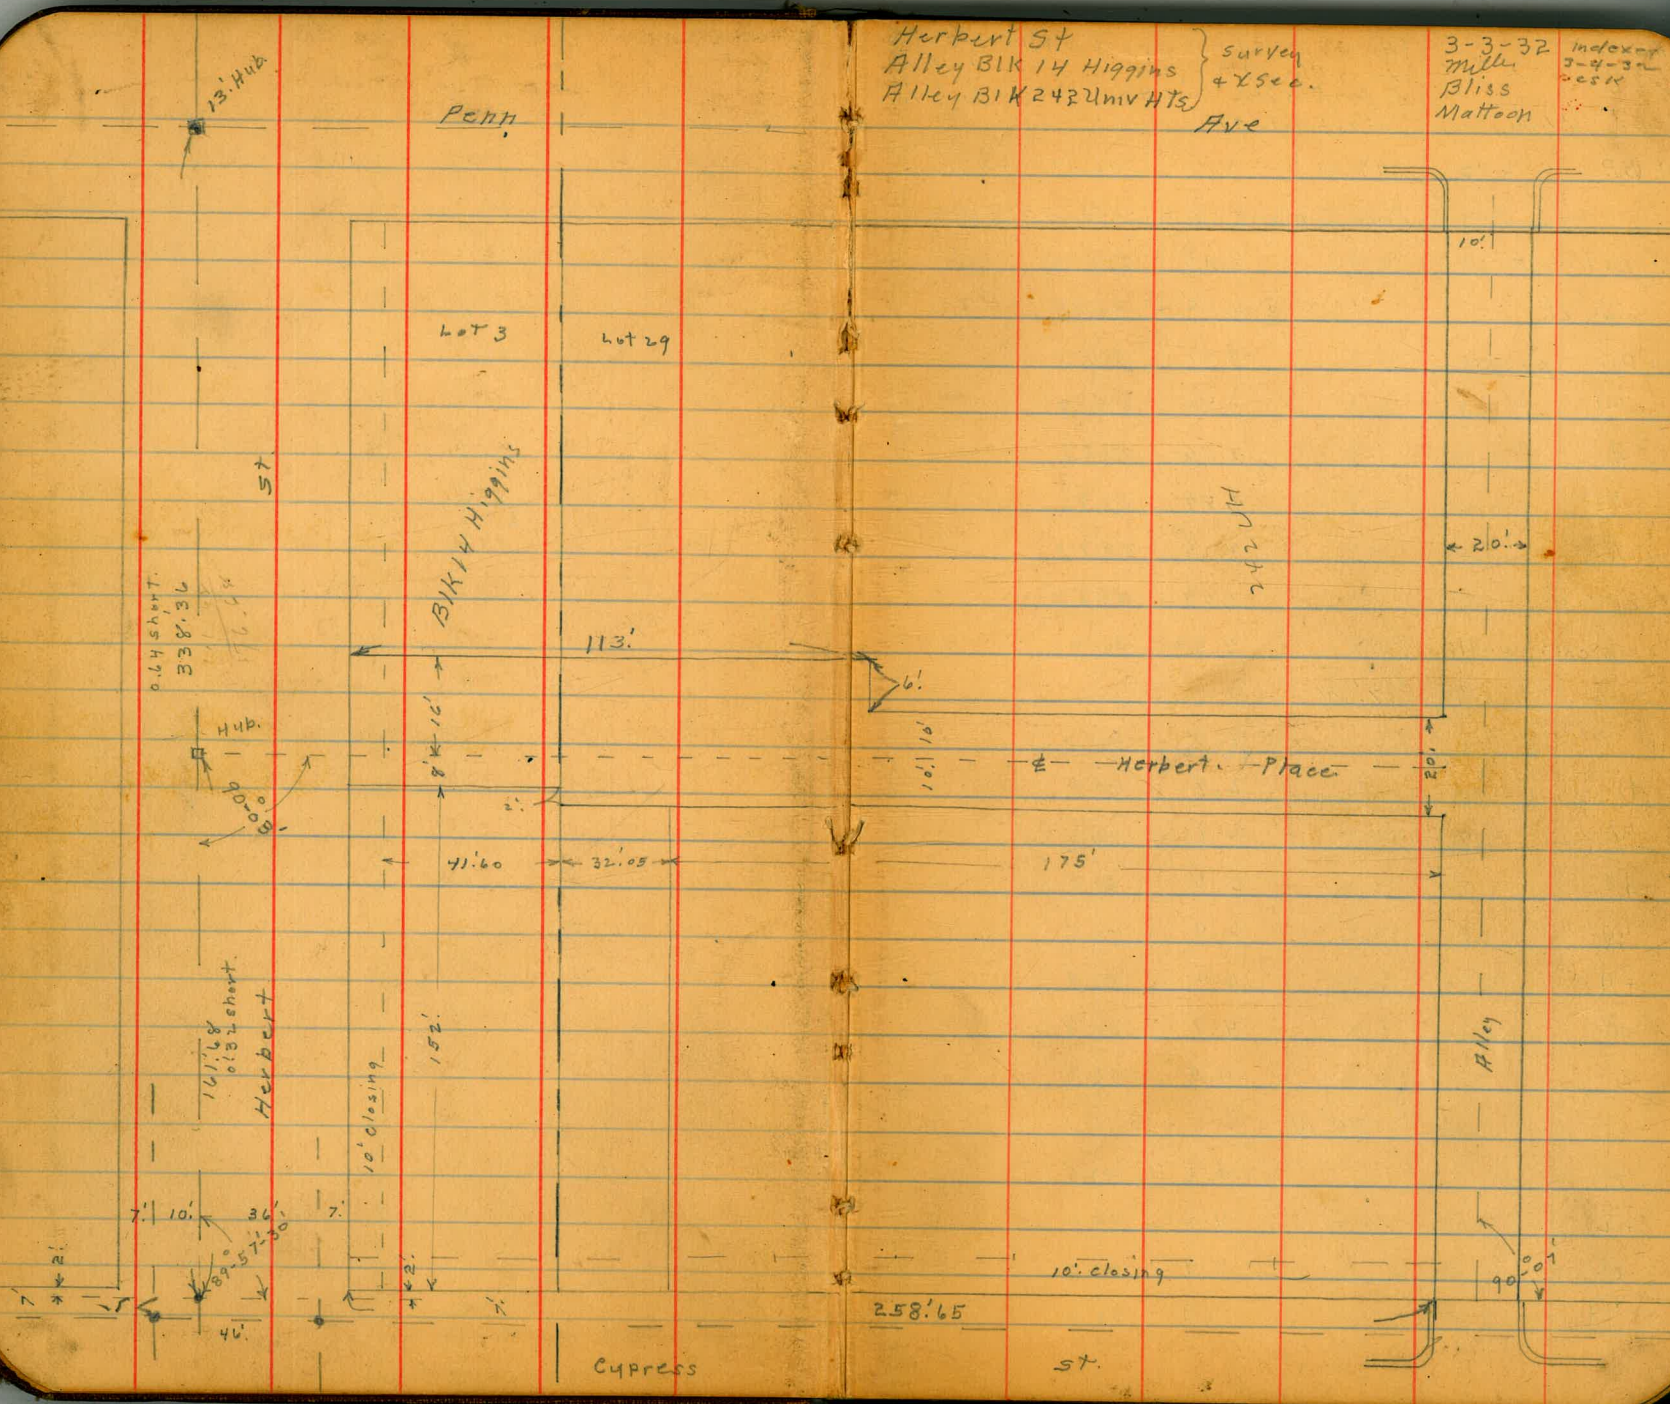 Herbert St
Alley Blk 14 Higgins
Alley Blk 242 Univ Hts
survey
& XSec.
3-3-32
Mille
Bliss
Mattoon
Index-
3-4-32
13' Hub.
Penn
Ave
10'
Lot 3
Lot 29
St.
Blk 14 Higgins
242 UH
20'
0.64 short.
338.36
113'
6'
16'
8'
Hub.
10' 10'
℄ Herbert. Place
20'
90-00
2'
41.60
32.05
175'
161.68
0.32 short.
Herbert
152'
10' Closing
Alley
7'
10'
36'
7'
89-57-30
2'
2'
7'
7'
10' closing
90-0
46'
258.65
Cypress
St.